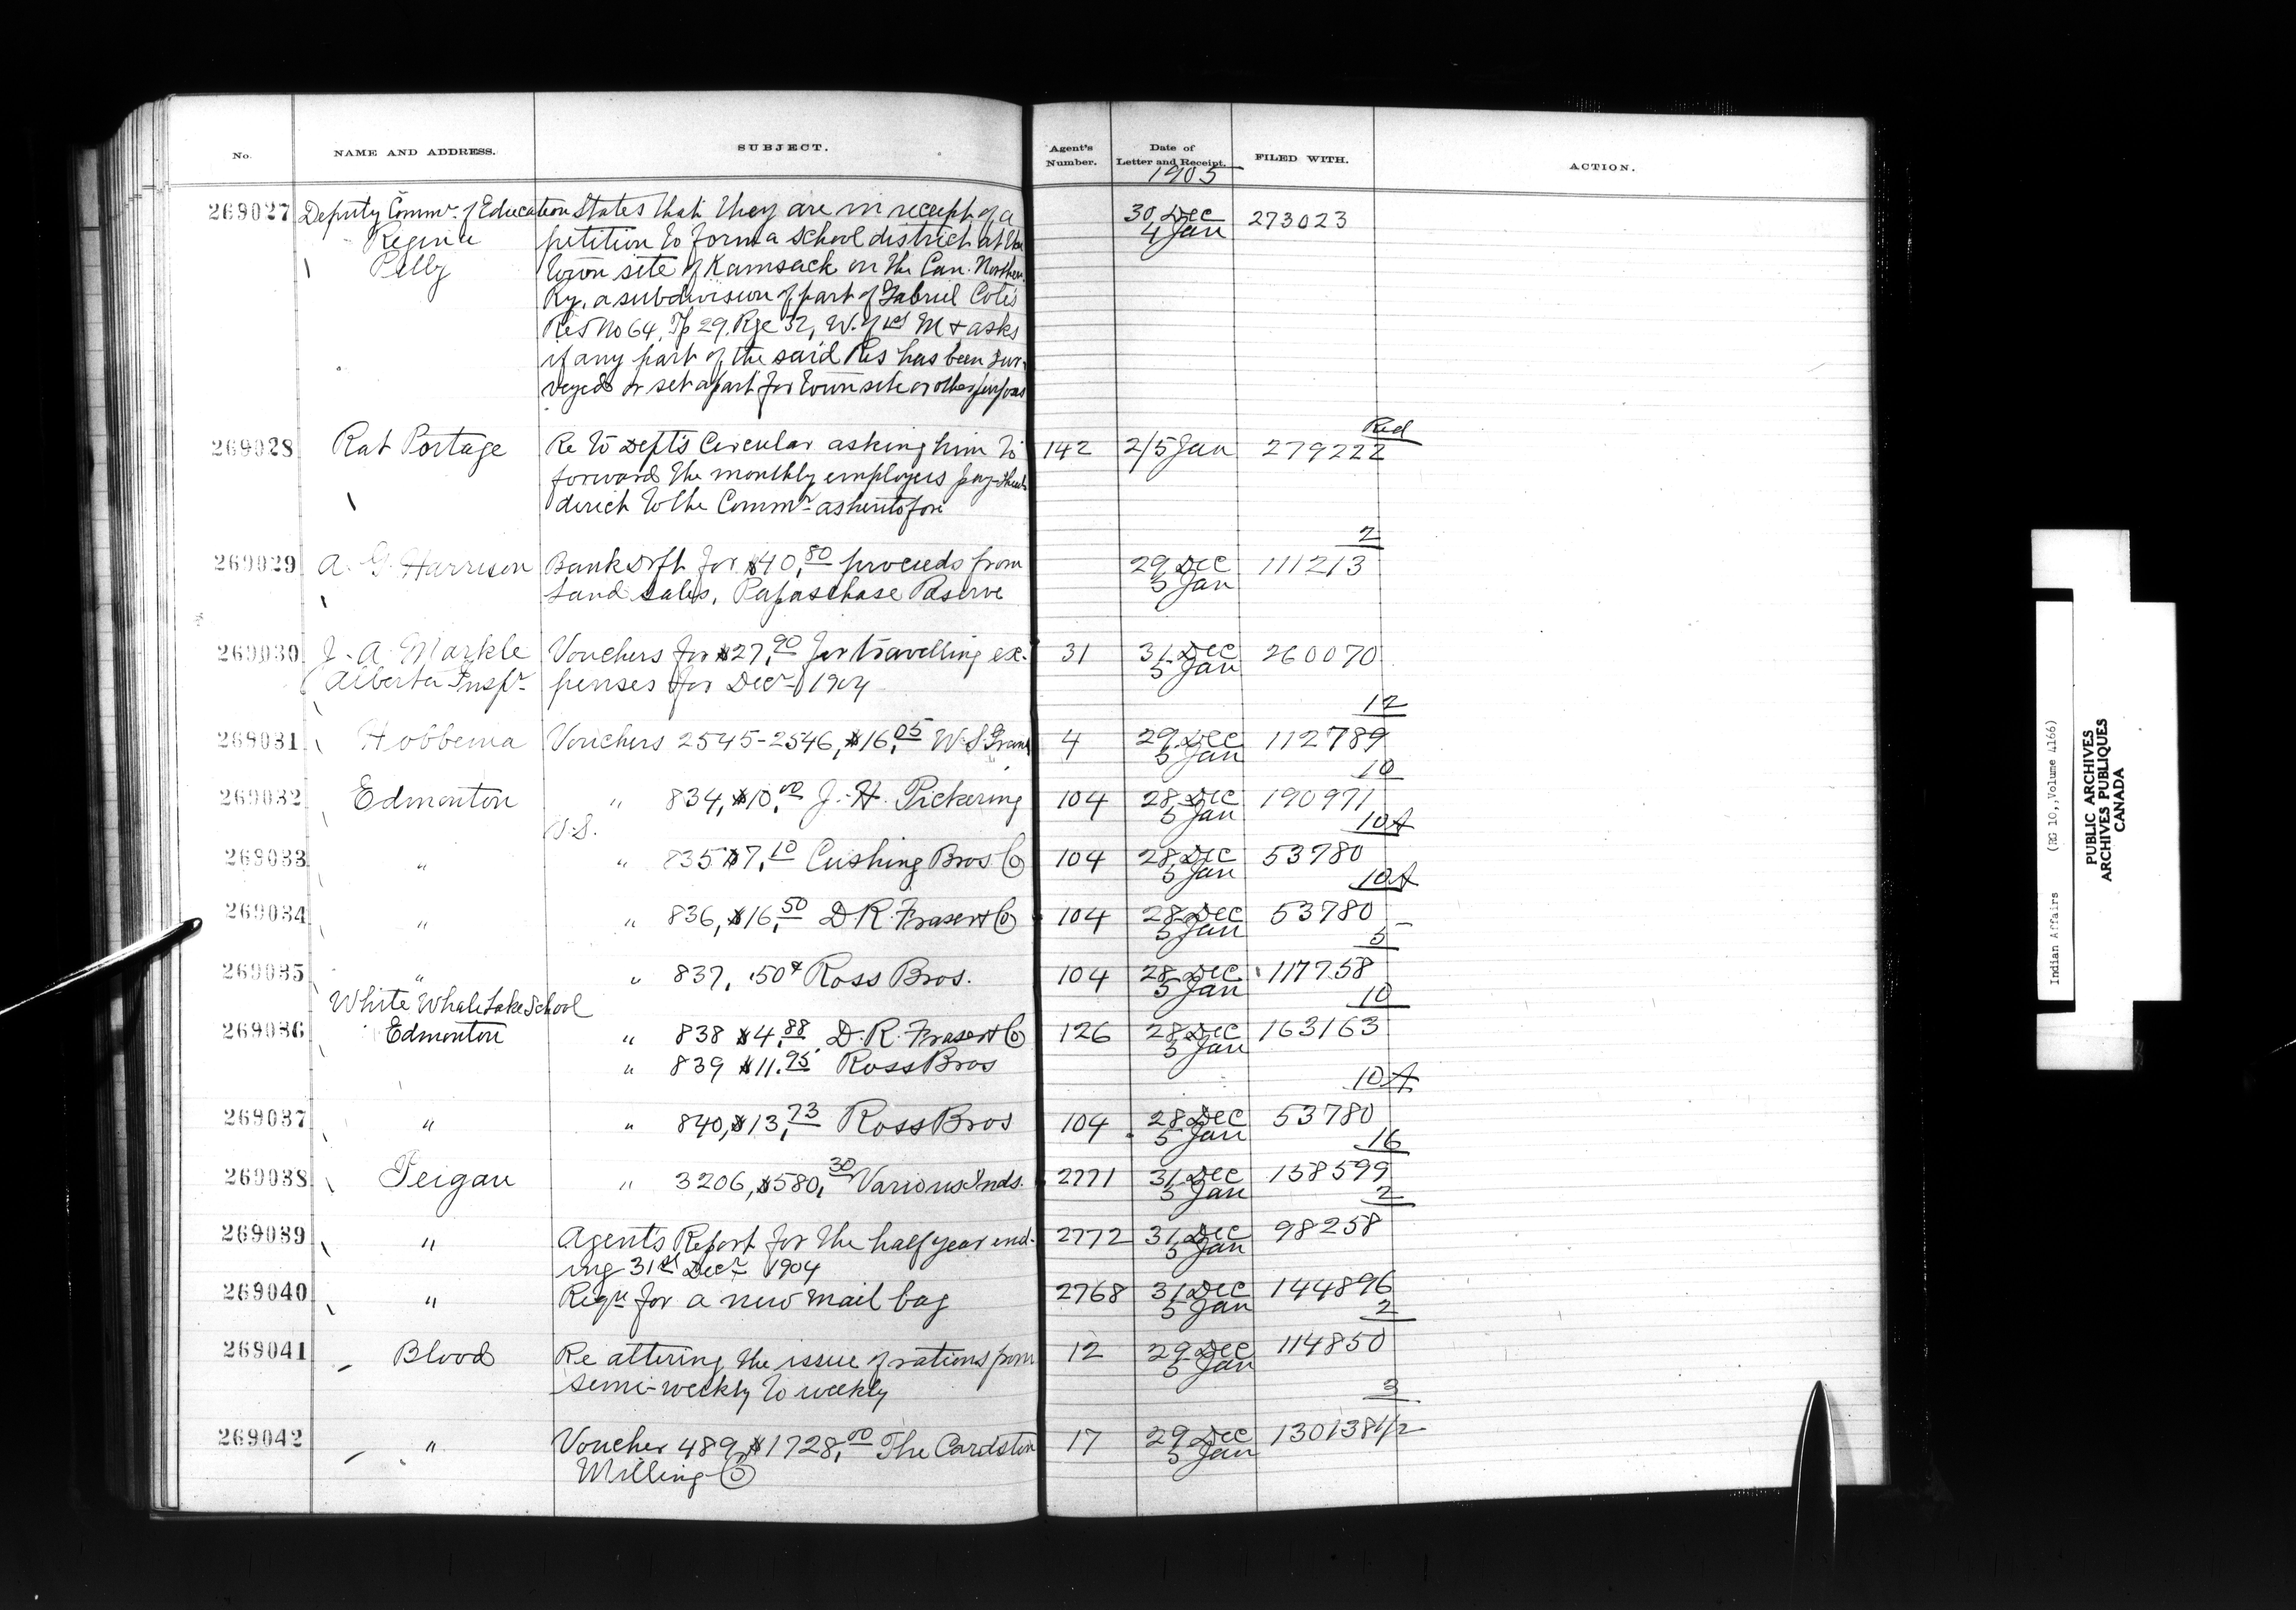 No. NAME AND ADDRESS. SUBJECT. Agent's Number. Date of Letter and Receipt. FILED WITH. ACTION.
1905
269027 Deputy Commr. of Education States that they are in receipt of a 30 Dec 273023
Regina petition to form a school district at the 4 Jan
Pelly town site of Kamsack on the Can. Northern
Ry. a subdivision of part of Gabriel Cote's
Res No 64, Tp 29, Rge 32, W. of 1st M & asks
if any part of the said Res has been sur-
veyed or set apart for town site or other purposes
Red
269028 Rat Portage Re to Dept's Circular asking him to 142 2/5 Jan 279222
forward the monthly employees pay sheets
direct to the Commr. as heretofore
2
269029 A. G. Harrison Bank Drft for $40,80 proceeds from 29 Dec 111213
5 Jan
Land sales, Papaschase Reserve
269030 J. A. Markle Vouchers for $27,90 for travelling ex- 31 31 Dec 260070
5 Jan
Alberta Inspr. penses for Decr 1904
12
269031 Hobbema Vouchers 2545-2546, $16,05 W. S. Grant 4 29 Dec 112789
5 Jan
10
269032 Edmonton " 834, $10,00 J. H. Pickering 104 28 Dec 190971
5 Jan
10A
269033 " " 835 $7,10 Cushing Bros Co 104 28 Dec 53780
5 Jan
10A
269034 " " 836, $16,50 D. R. Fraser & Co 104 28 Dec 53780
5 Jan
5
269035 " " 837, .50¢ Ross Bros. 104 28 Dec 117758
5 Jan
White Whale Lake School 10
269036 Edmonton " 838 $4,88 D. R. Fraser & Co 126 28 Dec 163163
5 Jan
" 839 $11.95 Ross Bros
10A
269037 " " 840, $13,73 Ross Bros 104 28 Dec 53780
5 Jan
16
269038 Peigan " 3206, $580,30 Various Inds. 2771 31 Dec 158599
5 Jan
2
269039 " Agent's Report for the half year end- 2772 31 Dec 98258
5 Jan
ing 31st Decr 1904
269040 " Reqn for a new mail bag 2768 31 Dec 144896
5 Jan
2
269041 Blood Re altering the issue of rations from 12 29 Dec 114850
5 Jan
semi-weekly to weekly
3
269042 " Voucher 489, $1728,00 The Cardston 17 29 Dec 130138 1/2
5 Jan
Milling Co
Indian Affairs (RG 10, Volume 4166)
PUBLIC ARCHIVES
ARCHIVES PUBLIQUES
CANADA